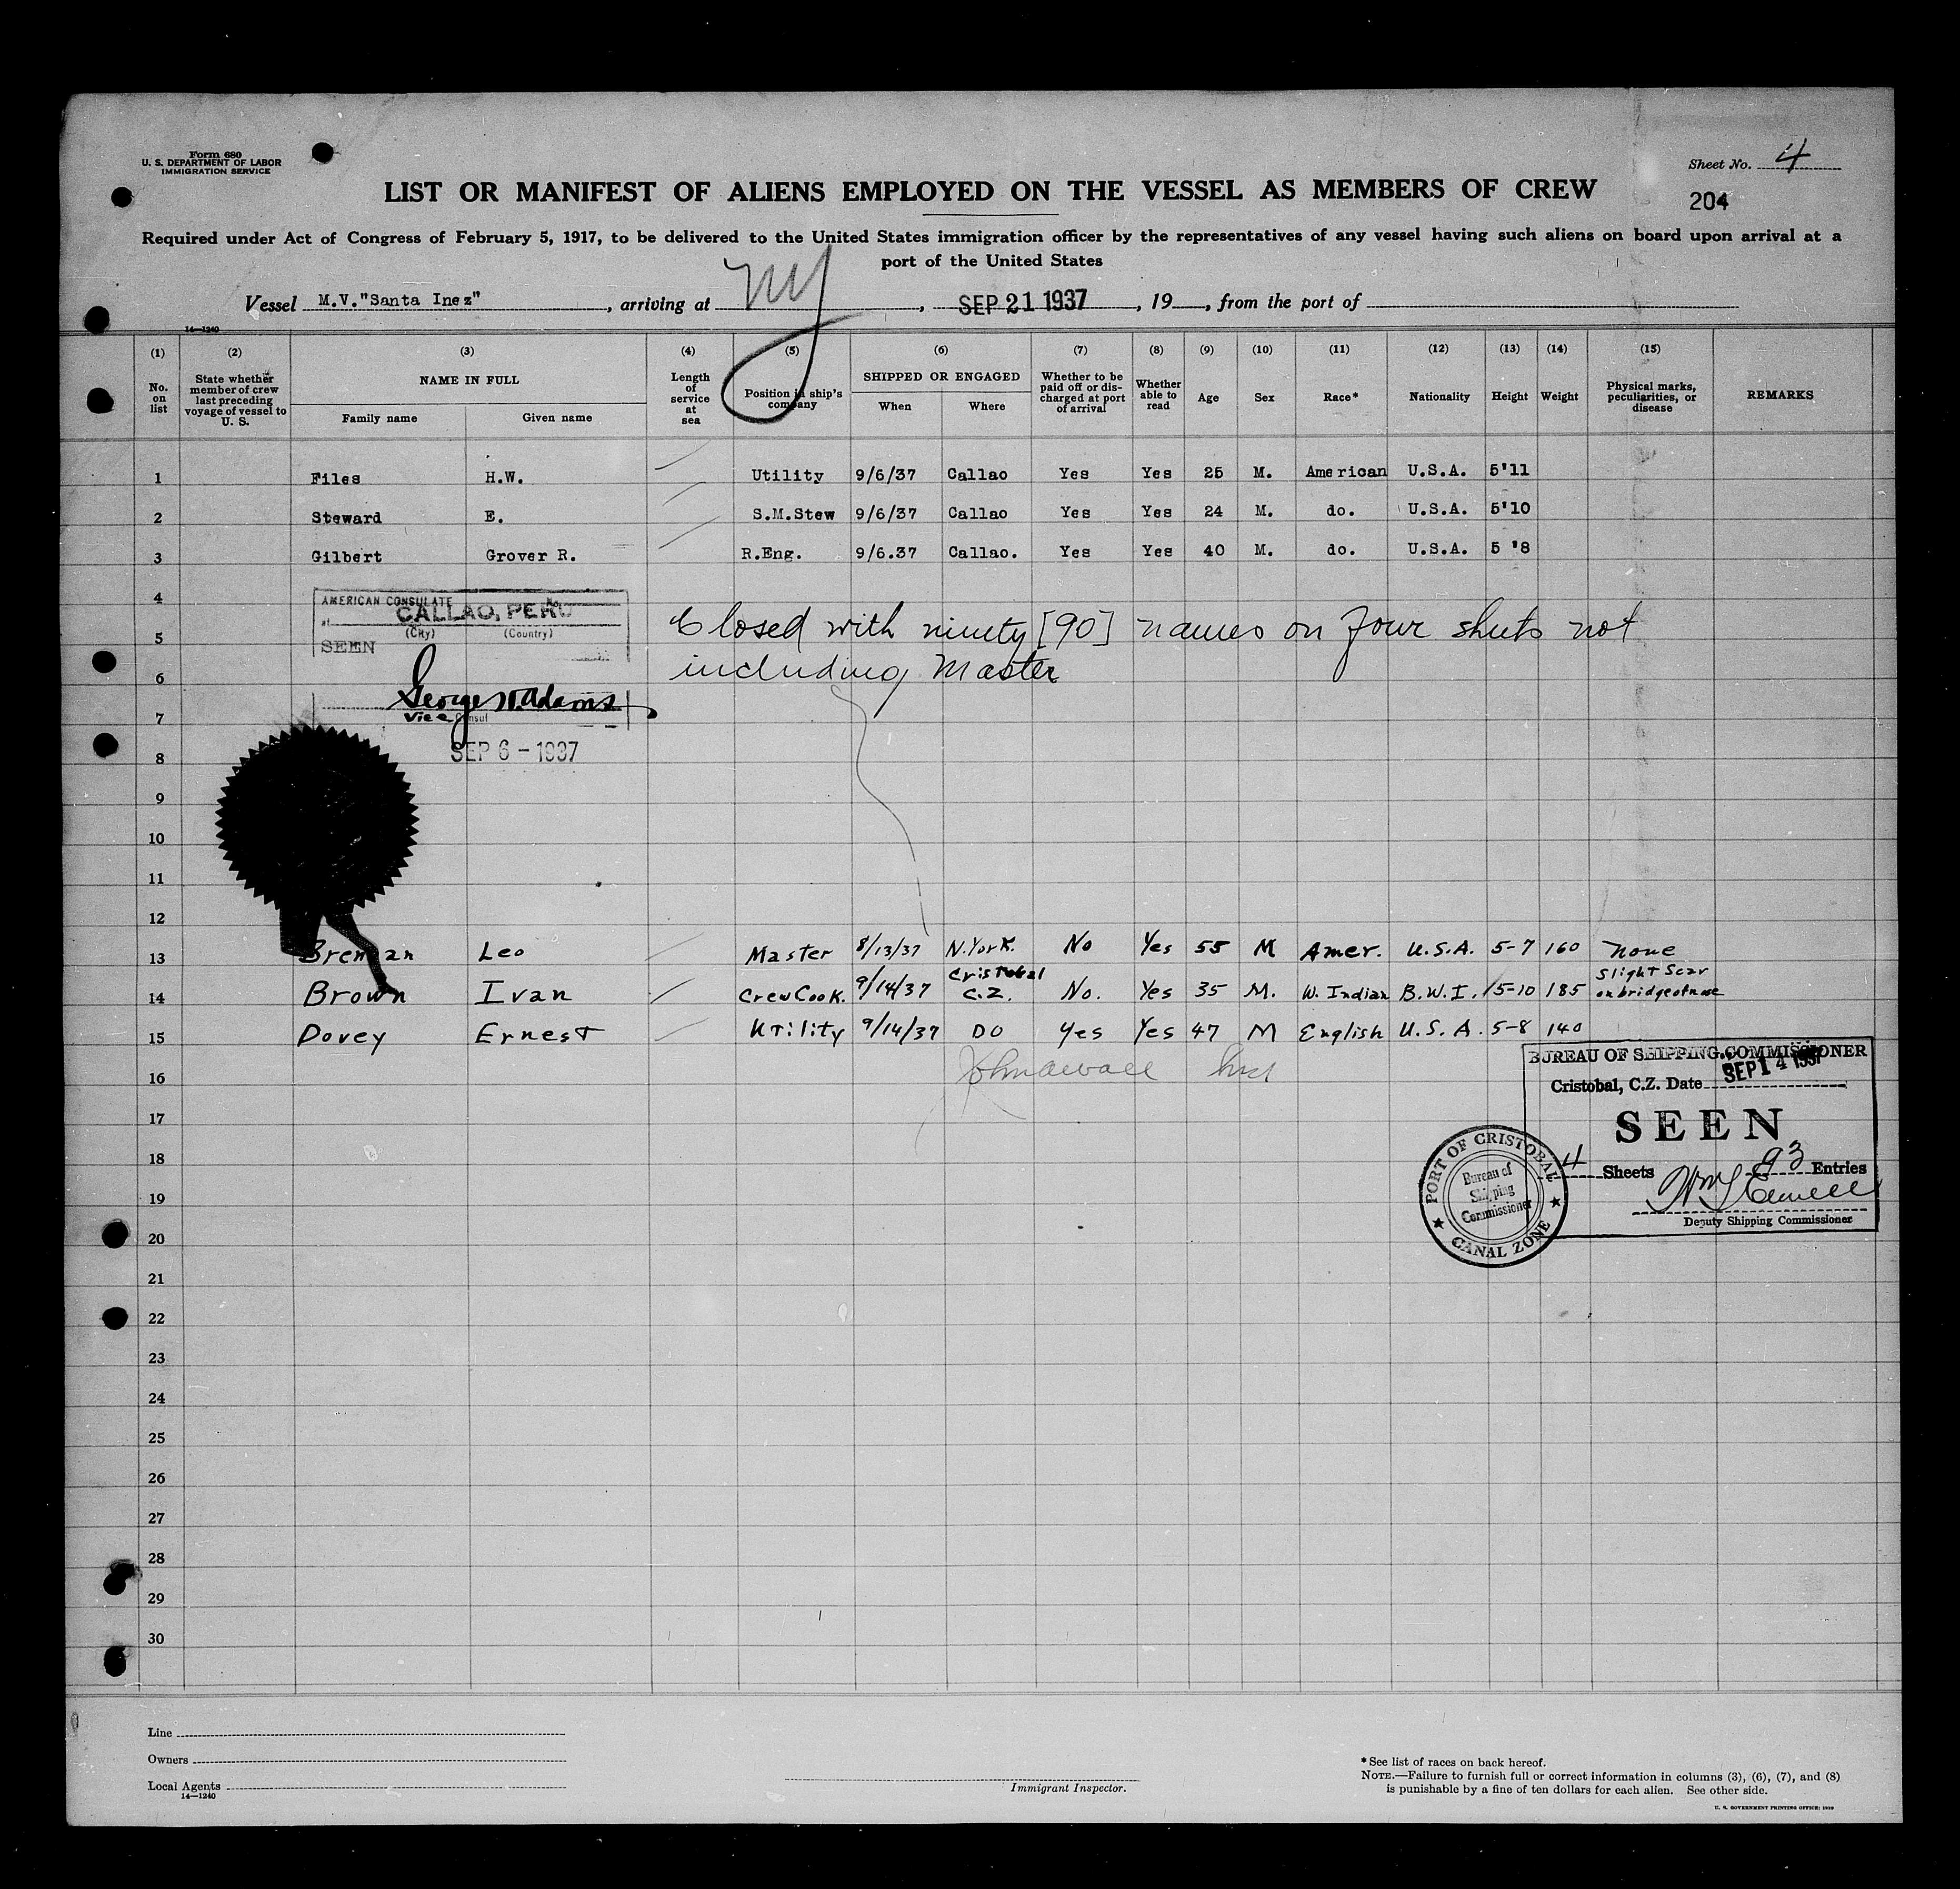 Form 680
U. S. DEPARTMENT OF LABOR
IMMIGRATION SERVICE
Sheet No. 4
204
LIST OR MANIFEST OF ALIENS EMPLOYED ON THE VESSEL AS MEMBERS OF CREW
Required under Act of Congress of February 5, 1917, to be delivered to the United States immigration officer by the representatives of any vessel having such aliens on board upon arrival at a
port of the United States
Vessel M.V."Santa Inez", arriving at NY, SEP 21 1937, 19, from the port of
14—1240
(1) (2) (3) (4) (5) (6) (7) (8) (9) (10) (11) (12) (13) (14) (15)
No. on list
State whether member of crew last preceding voyage of vessel to U. S.
NAME IN FULL
Family name
Given name
Length of service at sea
Position in ship's company
SHIPPED OR ENGAGED
When
Where
Whether to be paid off or discharged at port of arrival
Whether able to read
Age
Sex
Race*
Nationality
Height
Weight
Physical marks, peculiarities, or disease
REMARKS
1 Files H.W. Utility 9/6/37 Callao Yes Yes 25 M. American U.S.A. 5'11
2 Steward E. S.M.Stew 9/6/37 Callao Yes Yes 24 M. do. U.S.A. 5'10
3 Gilbert Grover R. R.Eng. 9/6.37 Callao. Yes Yes 40 M. do. U.S.A. 5 '8
4
AMERICAN CONSULATE
at CALLAO, PERU
(City) (Country)
SEEN
5 Closed with ninety [90] names on four sheets not
6 including Master
George W. Adams
Vice Consul
7
SEP 6 - 1937
8
9
10
11
12
13 Brennan Leo Master 8/13/37 N.York. No Yes 55 M Amer. U.S.A. 5-7 160 none
14 Brown Ivan Crew Cook. 9/14/37 Cristobal C.Z. No. Yes 35 M. W. Indian B.W.I. 5-10 185 Slight Scar on bridge of nose
15 Dovey Ernest Utility 9/14/37 DO Yes Yes 47 M English U.S.A. 5-8 140
16
17
18
19
20
21
22
23
24
25
26
27
28
29
30
BUREAU OF SHIPPING COMMISSIONER
Cristobal, C.Z. Date SEP 14 1937
SEEN
4 Sheets 93 Entries
Deputy Shipping Commissioner
PORT OF CRISTOBAL
Bureau of
Shipping
Commissioner
CANAL ZONE
Line
Owners
Local Agents
14—1240
Immigrant Inspector.
*See list of races on back hereof.
NOTE.—Failure to furnish full or correct information in columns (3), (6), (7), and (8)
is punishable by a fine of ten dollars for each alien. See other side.
U. S. GOVERNMENT PRINTING OFFICE: 1929